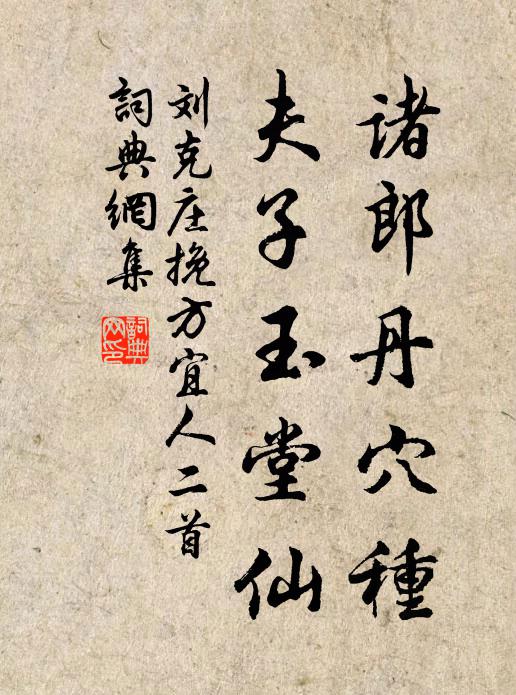 诸郎丹穴種
夫子玉堂仙
刘克庄挽方宜人二首
詞典網集
詞典网印